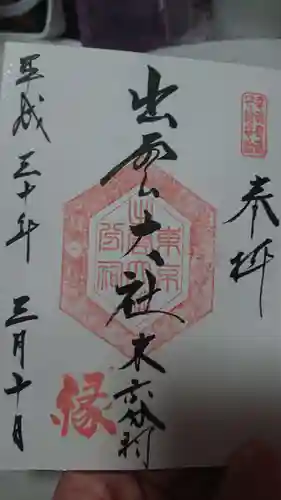 奉拝
出雲大社東京分祠
平成三十年三月十日
縁
東京
分祠